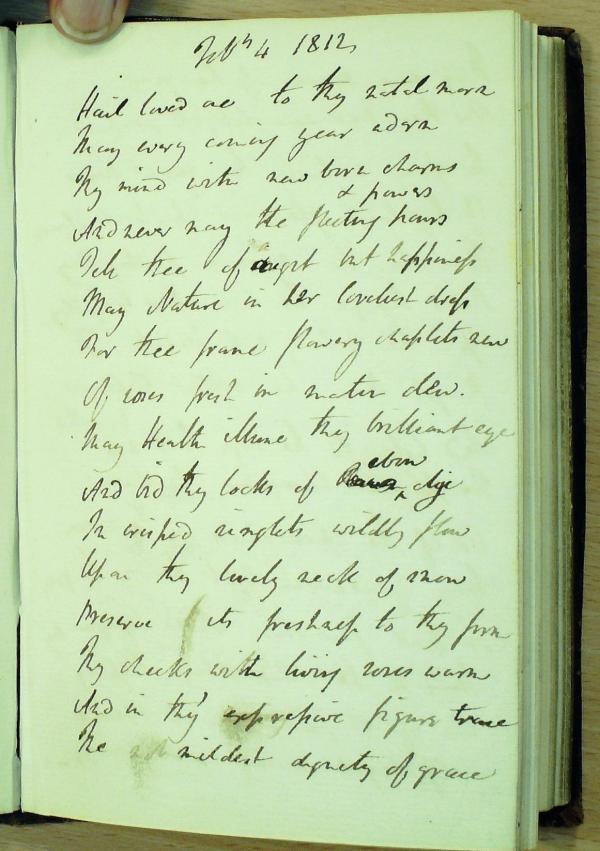 Feb 4 1812
Hail loved one to thy natal morn
May every coming year adorn
Thy mind with new born charms
& powers
And never may the fleeting hours
Tell thee of augt but happiness
May Nature in her loveliest dress
For thee frame flowery chaplets new
Of roses fresh in matin dew.
May Health illume thy brilliant eye
And bid thy locks of ebon dye
In crisped ringlets wildly flow
Upon thy lovely neck of snow
Preserve its freshness to thy form
Thy cheeks with living roses warm
And in thy expressive figure trace
The mildest dignity of grace